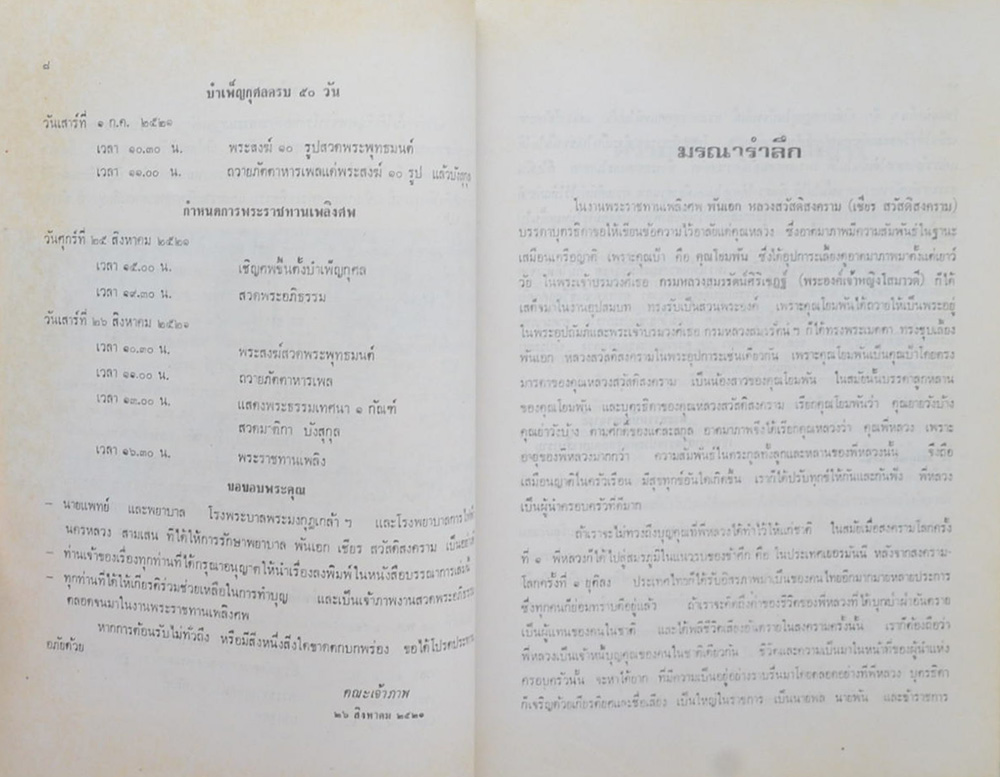 ๘
บำเพ็ญกุศลครบ ๕๐ วัน
วันเสาร์ที่ ๑ ก.ค. ๒๕๒๑
เวลา ๑๐.๓๐ น. พระสงฆ์ ๑๐ รูปสวดพระพุทธมนต์
เวลา ๑๑.๐๐ น. ถวายภัตตาหารเพลแด่พระสงฆ์ ๑๐ รูป แล้วบังสุกุล
กำหนดการพระราชทานเพลิงศพ
วันศุกร์ที่ ๒๕ สิงหาคม ๒๕๒๑
เวลา ๑๕.๐๐ น. เชิญศพขึ้นตั้งบำเพ็ญกุศล
เวลา ๑๙.๓๐ น. สวดพระอภิธรรม
วันเสาร์ที่ ๒๖ สิงหาคม ๒๕๒๑
เวลา ๑๐.๓๐ น. พระสงฆ์สวดพระพุทธมนต์
เวลา ๑๑.๐๐ น. ถวายภัตตาหารเพล
เวลา ๑๓.๐๐ น. แสดงพระธรรมเทศนา ๑ กัณฑ์
สวดมาติกา บังสุกุล
เวลา ๑๖.๓๐ น. พระราชทานเพลิง
ขอขอบพระคุณ
– นายแพทย์ และพยาบาล โรงพระบาลพระมงกุฎเกล้า ฯ และโรงพยาบาลการไฟฟ้า
นครหลวง สามเสน ที่ได้ให้การรักษาพยาบาล พันเอก เชียร สวัสดิสงคราม เป็นอย่างดี
– ท่านเจ้าของเรื่องทุกท่านที่ได้กรุณาอนุญาตให้นำเรื่องลงพิมพ์ในหนังสือบรรณาการเล่มนี้
– ทุกท่านที่ได้ให้เกียรติร่วมช่วยเหลือในการทำบุญ และเป็นเจ้าภาพงานสวดพระอภิธรรม
ตลอดจนมาในงานพระราชทานเพลิงศพ
หากการต้อนรับไม่ทั่วถึง หรือมีสิ่งหนึ่งสิ่งใดขาดตกบกพร่อง ขอได้โปรดประทาน
อภัยด้วย
คณะเจ้าภาพ
๒๖ สิงหาคม ๒๕๒๑
มรณารำลึก
ในงานพระราชทานเพลิงศพ พันเอก หลวงสวัสดิสงคราม (เชียร สวัสดิสงคราม)
บรรดาบุตรธิดาขอให้เขียนข้อความไว้อาลัยแด่คุณหลวง ซึ่งอาตมาภาพมีความสัมพันธ์ในฐานะ
เสมือนเครือญาติ เพราะคุณป้า คือ คุณโยมพัน ซึ่งได้อุปการะเลี้ยงดูอาตมาภาพมาตั้งแต่เยาว์
วัย ในพระเจ้าบรมวงศ์เธอ กรมหลวงสมรรัตน์ศิริเชฏฐ์ (พระองค์เจ้าหญิงโสมาวดี) ก็ได้
เสด็จมาในงานอุปสมบท ทรงรับเป็นส่วนพระองค์ เพราะคุณโยมพันได้ถวายให้เป็นพระอยู่
ในพระอุปถัมภ์และพระเจ้าบรมวงศ์เธอ กรมหลวงสมรรัตน์ ฯ ก็ได้ทรงพระเมตตา ทรงชุบเลี้ยง
พันเอก หลวงสวัสดิสงครามในพระอุปการะเช่นเดียวกัน เพราะคุณโยมพันเป็นคุณป้าโดยตรง
มารดาของคุณหลวงสวัสดิสงคราม เป็นน้องสาวของคุณโยมพัน ในสมัยนั้นบรรดาลูกหลาน
ของคุณโยมพัน และบุตรธิดาของคุณหลวงสวัสดิสงคราม เรียกคุณโยมพันว่า คุณยายวังบ้าง
คุณย่าวังบ้าง ตามศักดิ์ของแต่ละสกุล อาตมาภาพจึงได้เรียกคุณหลวงว่า คุณพี่หลวง เพราะ
อายุของพี่หลวงมากกว่า ความสัมพันธ์ในตระกูลทั้งลูกและหลานของพี่หลวงนั้น จึงถือ
เสมือนญาติในครัวเรือน มีสุขทุกข์อันใดเกิดขึ้น เราก็ได้ปรับทุกข์ให้กันและกันฟัง พี่หลวง
เป็นผู้นำครอบครัวที่ดีมาก
ถ้าเราจะไม่ทวงถึงบุญคุณที่พี่หลวงได้ทำไว้ให้แก่ชาติ ในสมัยเมื่อสงครามโลกครั้ง
ที่ ๑ พี่หลวงก็ได้ไปสู่สมรภูมิในแนวรบของข้าศึก คือ ในประเทศเยอรมันนี หลังจากสงคราม-
โลกครั้งที่ ๑ ยุติลง ประเทศไทยก็ได้รับอิสรภาพมาเป็นของคนไทยอีกมากมายหลายประการ
ซึ่งทุกคนก็ย่อมทราบดีอยู่แล้ว ถ้าเราจะคิดถึงค่าของชีวิตของพี่หลวงที่ได้บุกบ่าฝ่าอันตราย
เป็นผู้แทนของคนในชาติ และได้พลีชีวิตเสี่ยงอันตรายในสงครามครั้งนั้น เราก็ต้องถือว่า
พี่หลวงเป็นเจ้าหนี้บุญคุณของคนในชาติเดียวกัน ชีวิตและความเป็นมาในหน้าที่ของผู้นำแห่ง
ครอบครัวนั้น จะหาได้ยาก ที่มีความเป็นอยู่อย่างราบรื่นมาโดยตลอดอย่างที่พี่หลวง บุตรธิดา
ก็เจริญด้วยเกียรติยศและชื่อเสียง เป็นใหญ่ในราชการ เป็นนายพล นายพัน และข้าราชการ